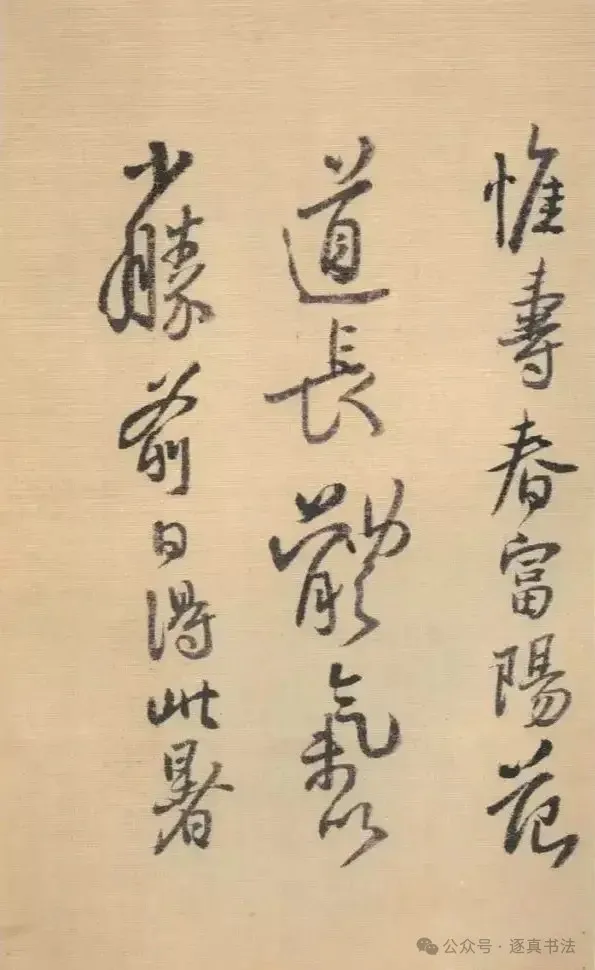 惟壽春富陽
道長氣以
少勝前日得此暑
公众号·逐真书法